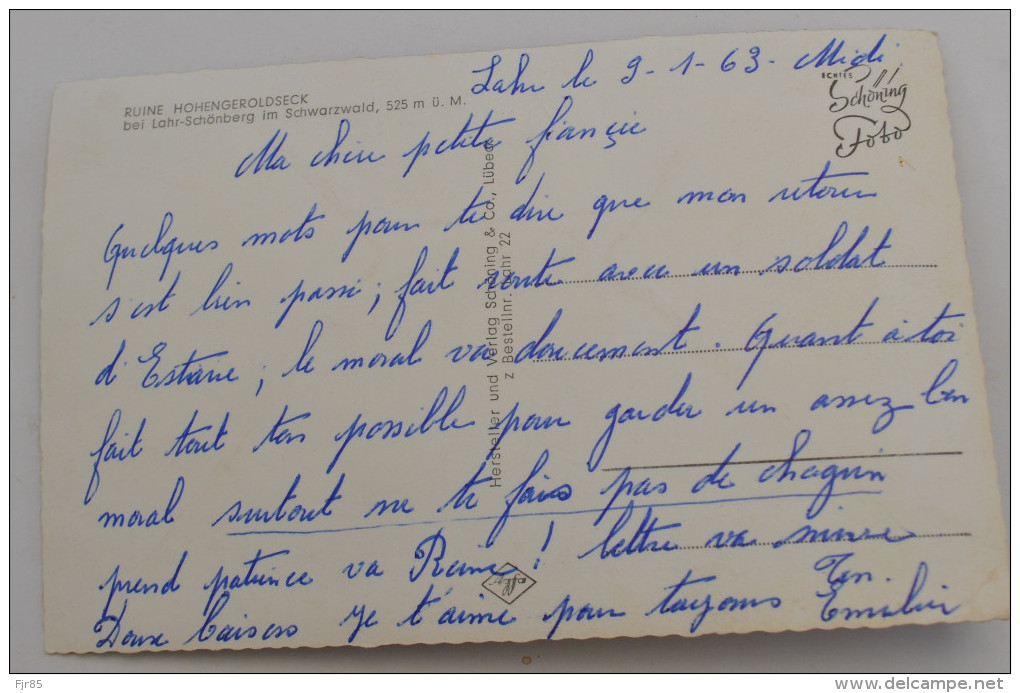 RUINE HOHENGEROLDSECK
bei Lahr-Schönberg im Schwarzwald, 525 m ü. M.
Lahr le 9-1-63- Midi.
ECHTES
Schöning
Foto
Ma chère petite fiancée
Quelques mots pour te dire que mon retour
s'est bien passé; fait route avec un soldat
d'Estavie; le moral va doucement. Quant à toi
fait tout ton possible pour garder un assez bon
moral surtout ne te fais pas de chagrin
prend patience va Reine! lettre va suivre
Ton.
Doux baisers je t'aime pour toujours Emilien
Hersteller und Verlag Schöning & Co., Lübeck
z Bestellnr. Lahr 22
Fjr85
www.delcampe.net